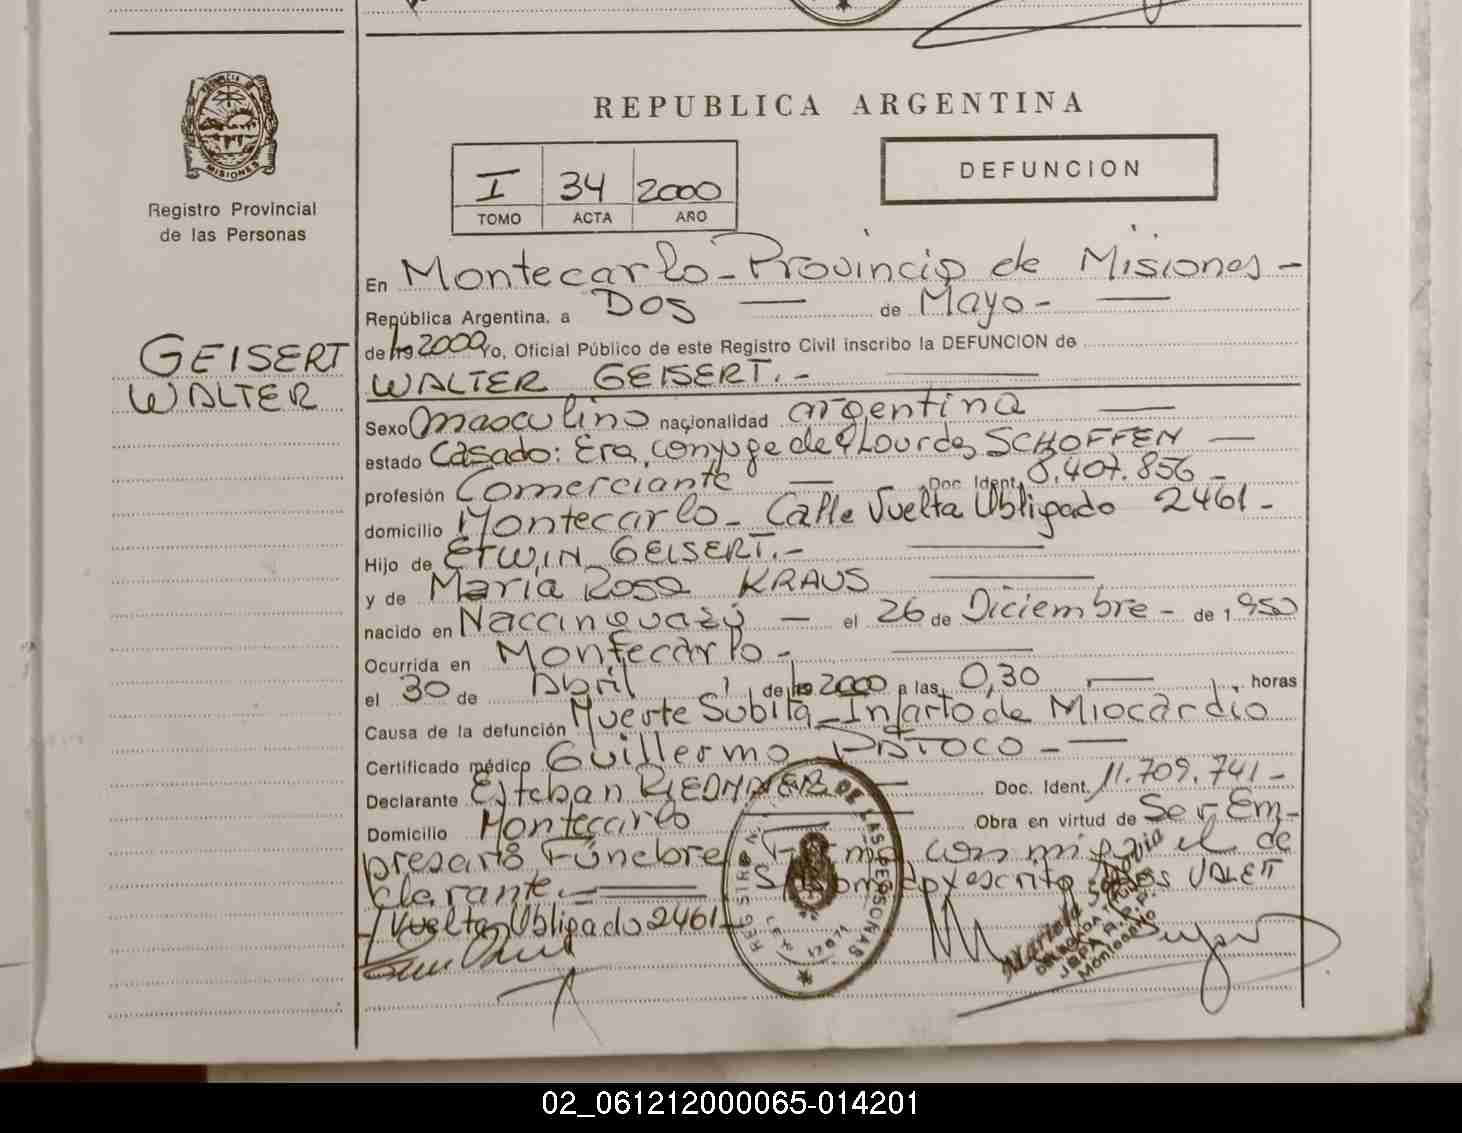 PROVINCIA DE
MISIONES
Registro Provincial
de las Personas
GEISERT
WALTER
REPUBLICA ARGENTINA
I 34 2000
TOMO ACTA AÑO
DEFUNCION
En Montecarlo - Provincia de Misiones -
República Argentina, a Dos — de Mayo - —
de 19 2000 Yo, Oficial Público de este Registro Civil inscribo la DEFUNCION de
WALTER GEISERT. - —
Sexo masculino nacionalidad argentina —
estado Casado: Era conyuge de Lourdes SCHOFFEN —
profesión Comerciante — Doc. Ident. 8.407.856 -
domicilio Montecarlo - Calle Vuelta Obligado 2461 -
Hijo de ErWIN GEISERT. - —
y de Maria Rosa KRAUS —
nacido en — el 26 de Diciembre - de 1950
Ocurrida en Montecarlo - —
el 30 de Abril de 19 2000 a las 0,30 — horas
Causa de la defunción Muerte Subita - Infarto de Miocardio
Certificado médico Guillermo - —
Declarante Esteban — Doc. Ident. 11.709.741 -
Domicilio Montecarlo — Obra en virtud de Ser Em-
presario Fúnebre Firma con migo el de
clarante. - — escrito VALET
Vuelta Obligado 2461 -
REGISTRO DE LAS PERSONAS
02_061212000065-014201